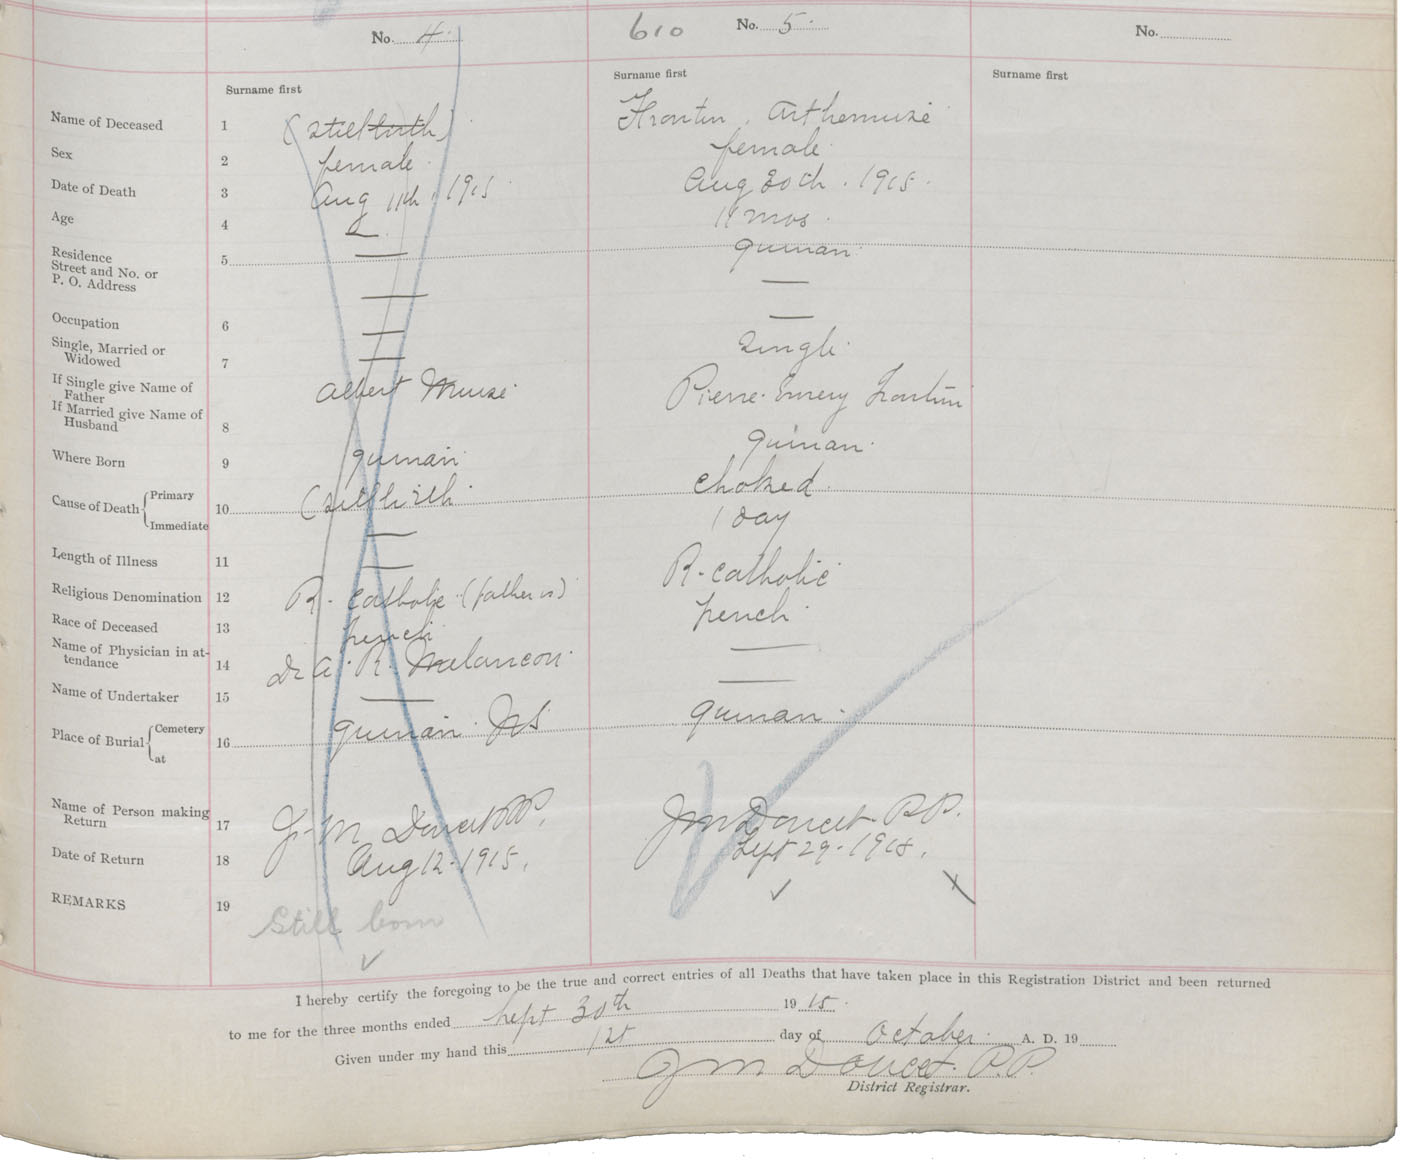 No. 4
610 No. 5
No.
Surname first
Surname first
Surname first
Name of Deceased 1 (stillbirth) Frontin, Arthemise
Sex 2 female female
Date of Death 3 Aug 11th 1915 Aug 30th. 1915.
Age 4 — mos.
Residence Quinan
Street and No. or 5 — —
P. O. Address
Occupation 6 — —
Single, Married or
Widowed 7 — Single
If Single give Name of
Father Albert Muise Pierre Emery Frontin
If Married give Name of
Husband 8
Where Born 9 Quinan Quinan
Cause of Death { Primary 10 (stillbirth choked
Immediate — 1 day
Length of Illness 11 —
Religious Denomination 12 R. Catholic (father is) R. Catholic
Race of Deceased 13 french french
Name of Physician in at-
tendance 14 Dr A. R. Melancon —
Name of Undertaker 15 — —
Place of Burial { Cemetery 16 Quinan NS Quinan
at
Name of Person making
Return 17 J. M. Doucet P.P. J M Doucet P.P.
Date of Return 18 Aug 12-1915. Sept 29-1915.
REMARKS 19 Still born
I hereby certify the foregoing to be the true and correct entries of all Deaths that have taken place in this Registration District and been returned
to me for the three months ended Sept 30th 1915.
Given under my hand this 1st day of October A. D. 19
J M Doucet. P.P.
District Registrar.